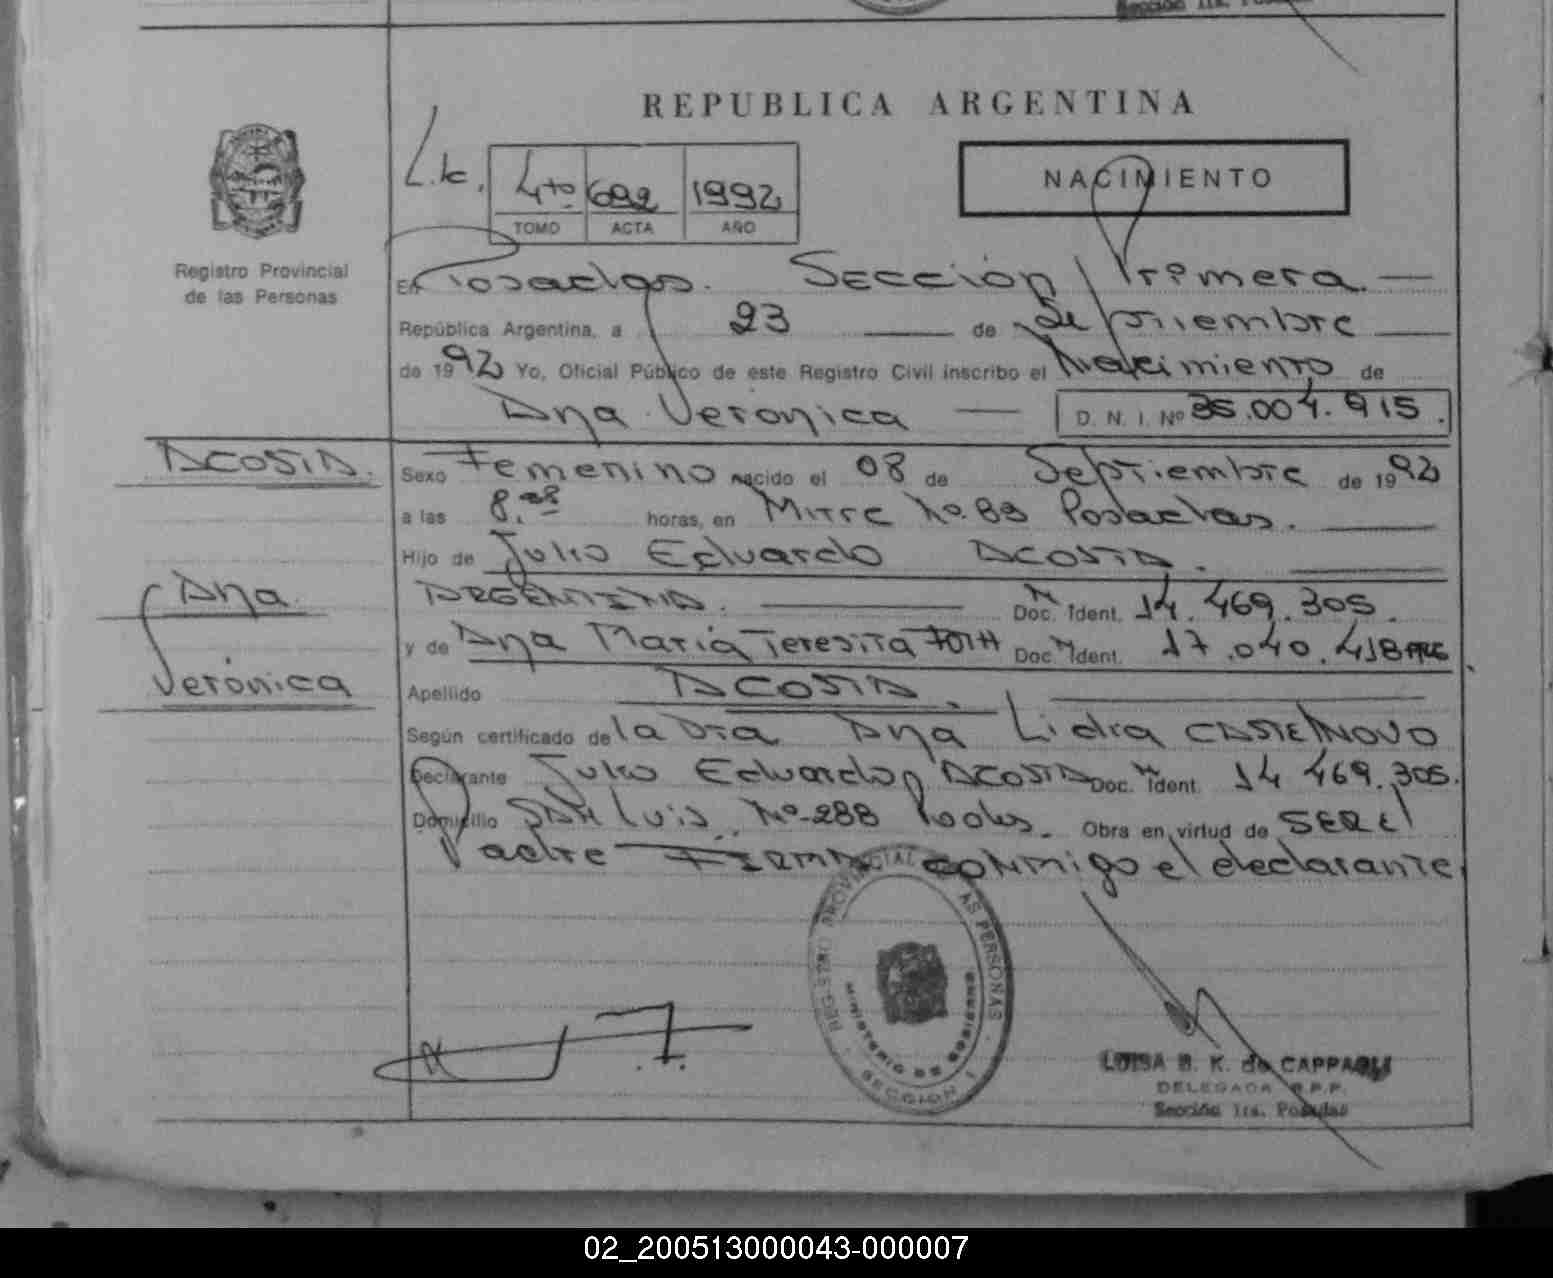 REPUBLICA ARGENTINA
NACIMIENTO
4to 692 1992
TOMO ACTA AÑO
Registro Provincial
de las Personas
En Posadas. Sección Primera.
República Argentina, a 23 de Septiembre
de 1992 Yo, Oficial Público de este Registro Civil inscribo el Nacimiento de
Ana Verónica D. N. I. Nº 35.004.915.
ACOSTA.
Sexo Femenino nacido el 08 de Septiembre de 1992
a las 8. horas, en Mitre No. 89 Posadas.
Hijo de Julio Eduardo ACOSTA.
Ana
ARGENTINA. Doc. Ident. 14.469.305.
y de Ana María Teresita Doc. Ident. 17.040.418
Verónica
Apellido ACOSTA.
Según certificado de la Dra Ana Lidia CASTELNOVO
Declarante Julio Eduardo ACOSTA Doc. Ident. 14.469.305.
Domicilio SAN Luis. No-288 Obra en virtud de SER el
Padre FIRMA CONMigo el declarante
REGISTRO PROVINCIAL DE LAS PERSONAS
MINISTERIO DE GOBIERNO
SECCION 1
LUISA B. K. de
DELEGADA R.P.P.
Sección 1ra. Posadas
02_200513000043-000007